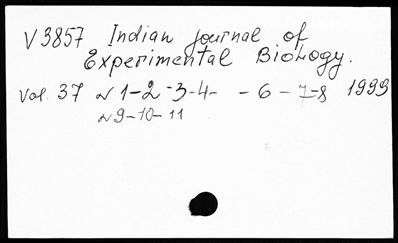 V 3857 Indian Journal of
Experimental Biology.
Vol. 37 N 1-2-3-4- - 6 - 7-8 1999
N 9-10-11